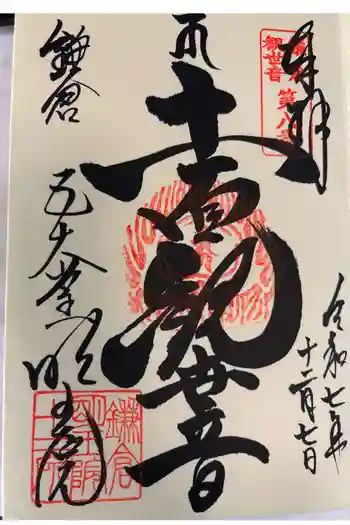 奉拝
令和七年
十二月七日
十一面観世音
鎌倉
五大堂明王院
観世音
第八番
鎌倉